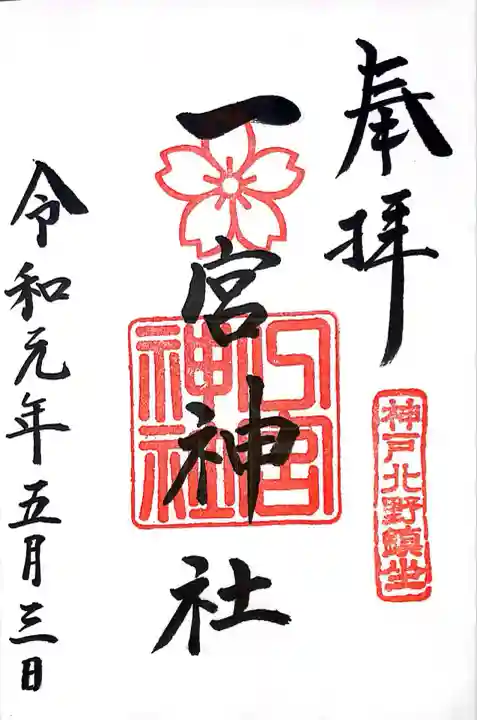 奉拝
神戸北野鎮坐
一宮神社
令和元年五月三日